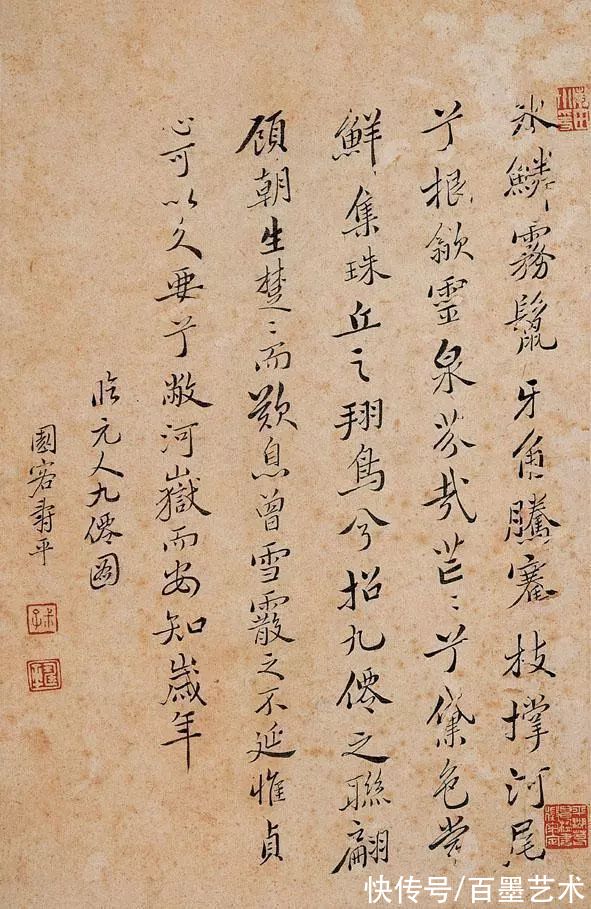 氷鱗霧鬣牙角騰騫枝撐河尾
兮根歙靈泉芬哉芒〻兮黛色常
鮮集珠丘之翔鳥兮招九僊之聯翩
顧朝生楚〻而歎息曾雪霰之不延惟貞
心可以久要兮敝河嶽而安知歲年
臨元人九僊圖
園客壽平
快传号/百墨艺术